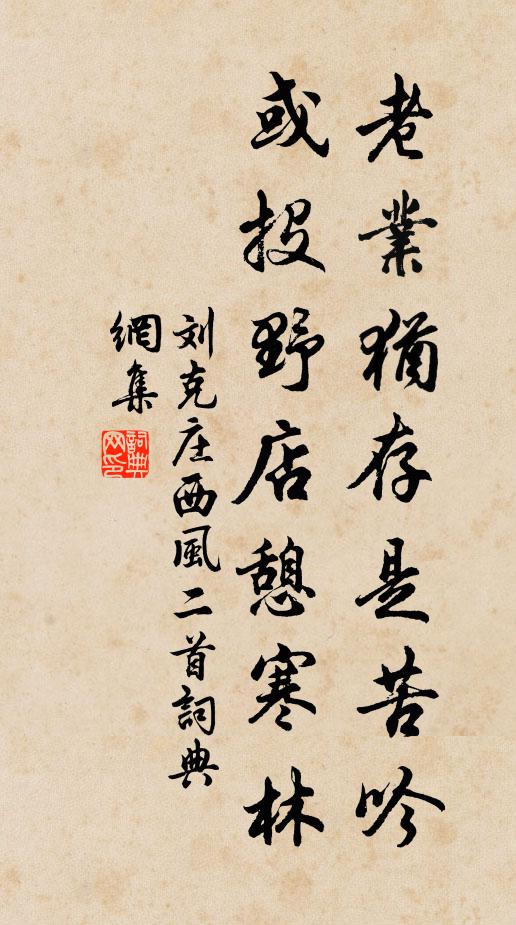 老業猶存是苦吟
或投野店憩寒林
刘克庄西風二首詞典
網集
詞典
网印